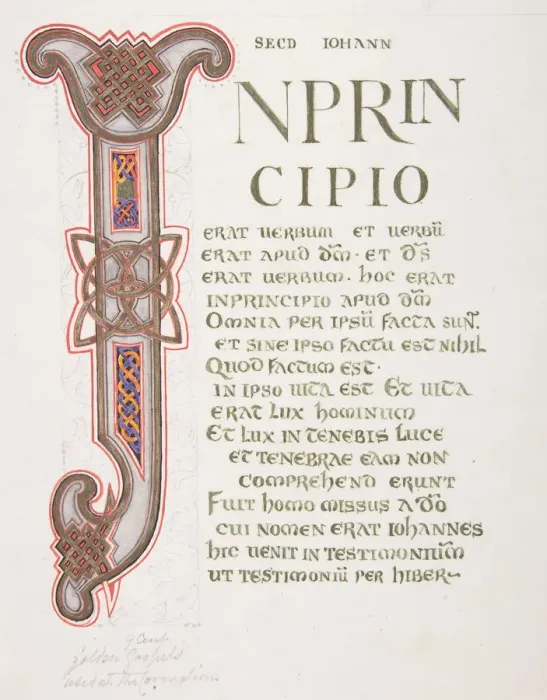 SECD IOHANN
INPRIN
CIPIO
ERAT UERBUM ET UERBŪ
ERAT APUD DM̄ · ET DS̄
ERAT UERBUM · hOC ERAT
INPRINCIPIO APUD DM̄
OMNIA PER IPSŪ FACTA SUN̄.
ET SINE IPSO FACTU EST NIhIL
QUOD FACTUM EST ·
IN IPSO UITA EST ET UITA
ERAT LUX hOMINUM
ET LUX IN TENEBIS LUCE
ET TENEBRAE EAM NON
COMPREHEND ERUNT
FUIT hOMO MISSUS A DŌ
CUI NOMEN ERAT IOHANNES
hIC UENIT IN TESTIMONIUM̄
UT TESTIMONIŪ PER hIBER~
9 Cent.
golden Gospels
used at the Coronations